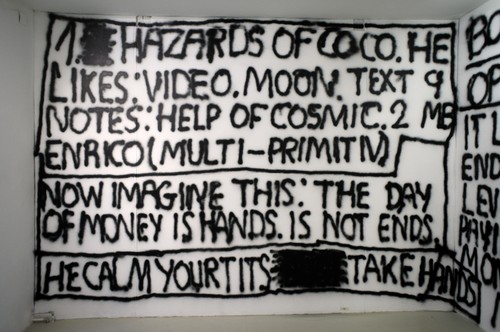 1. HAZARDS OF COCO. HE
LIKES: VIDEO. MOON. TEXT 9
NOTES: HELP OF COSMIC. 2 ME
ENRICO (MULTI-PRIMITIV)
NOW IMAGINE THIS: THE DAY
OF MONEY IS HANDS. IS NOT ENDS.
HE CALM YOUR TITS TAKE HANDS
IT'L